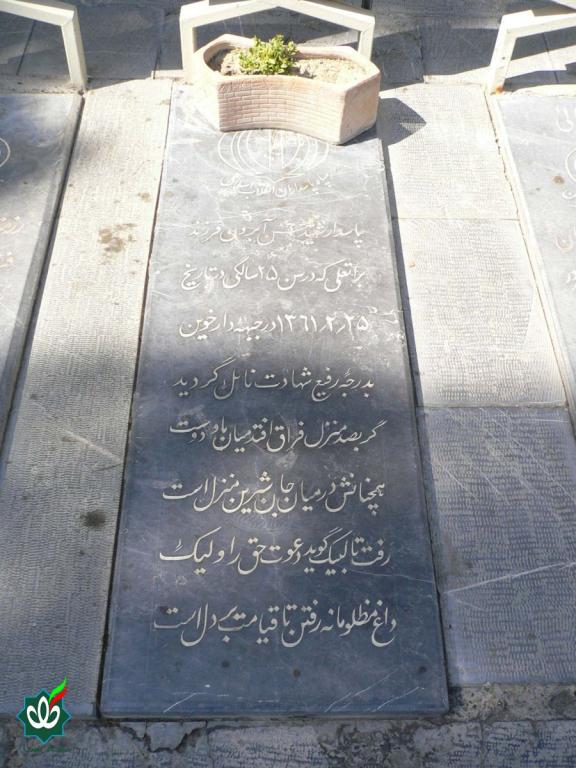 سپاه پاسداران انقلاب اسلامی
پاسدار شهید آبرون فرزند
براتعلی که در سن ۲۵ سالگی در تاریخ
۱۳۶۱/۲/۲۵ در جبهه دارخوین
بدرجه رفیع شهادت نائل گردید
گر بصد منزل فراق افتد میان ما و دوست
همچنانش در میان جان شیرین منزل است
رفت تا لبیک گوید دعوت حق را ولیک
داغ مظلومانه رفتن تا قیامت بر دل است